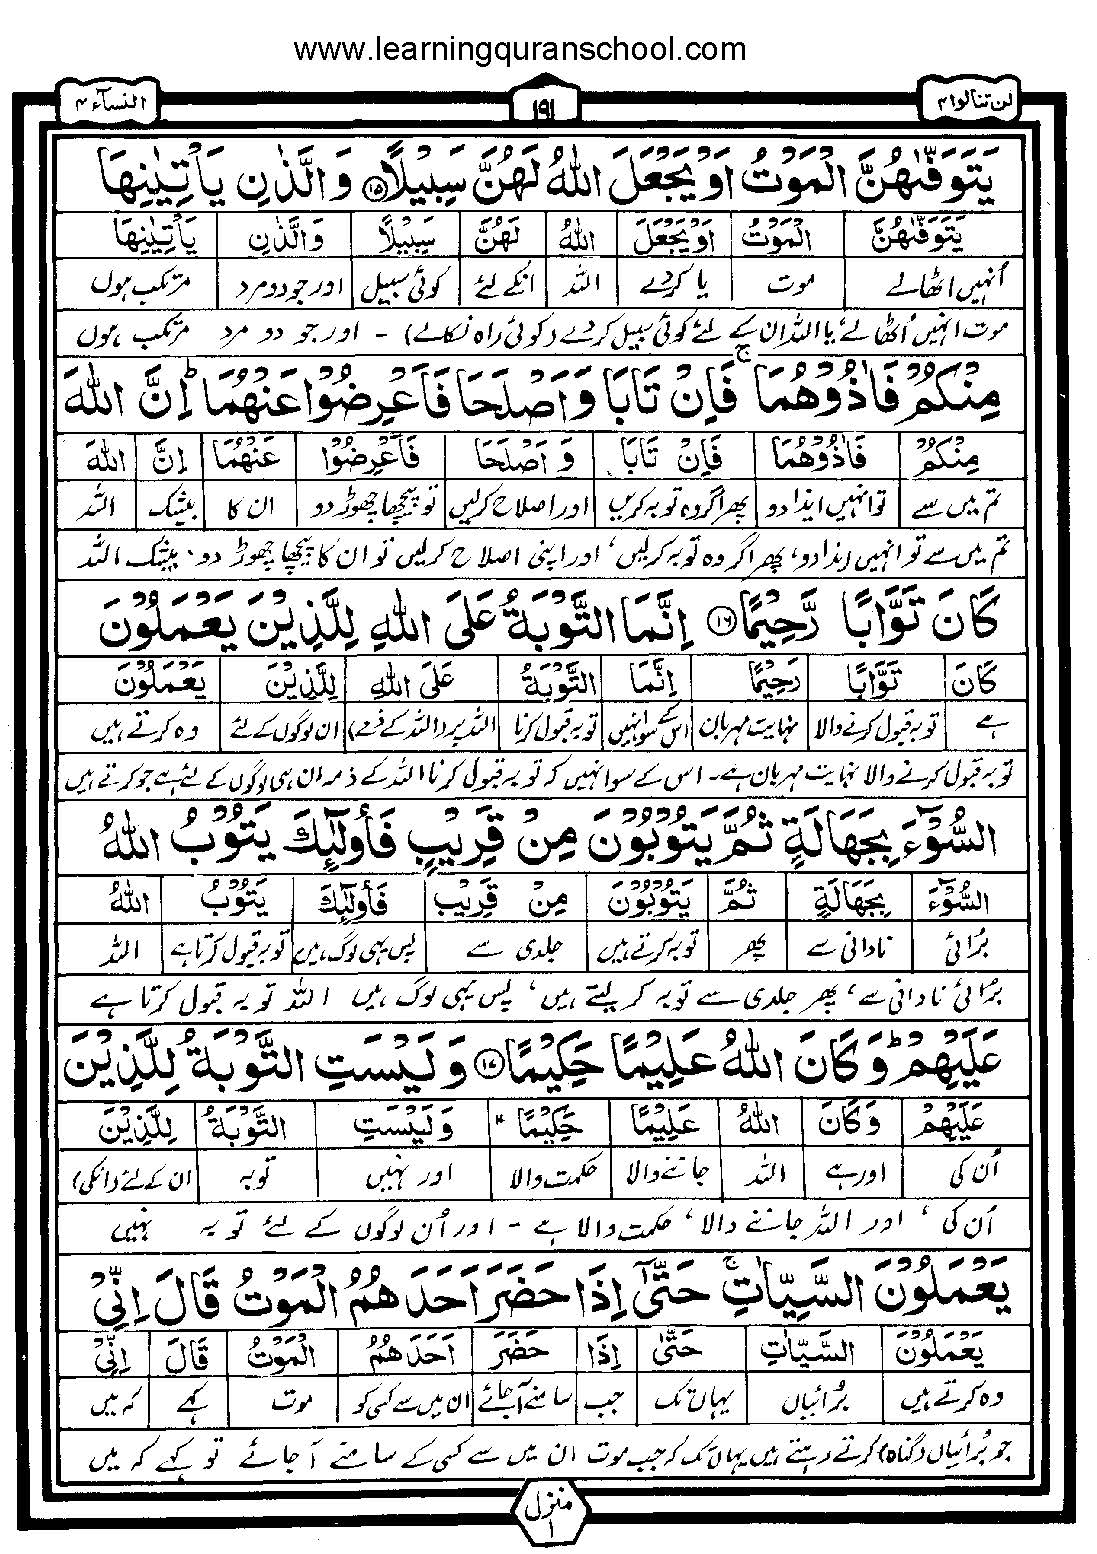 www.learningquranschool.com
لن تنالوا ۴ ۱۹۱ النسآء ۴
يَتَوَفّٰىهُنَّ الْمَوْتُ اَوْ يَجْعَلَ اللّٰهُ لَهُنَّ سَبِيْلًا ۝۱۵ وَالَّذٰنِ يَاْتِيٰنِهَا
يَتَوَفّٰىهُنَّ الْمَوْتُ اَوْ يَجْعَلَ اللّٰهُ لَهُنَّ سَبِيْلًا وَالَّذٰنِ يَاْتِيٰنِهَا
اُنہیں اٹھالے موت یا کردے اللہ انکے لئے کوئی سبیل اور جو دو مرد مرتکب ہوں
موت انہیں اُٹھالے یا اللہ ان کے لئے کوئی سبیل کردے (کوئی راہ نکالے) - اور جو دو مرد مرتکب ہوں
مِنْكُمْ فَاٰذُوْهُمَا ۚ فَاِنْ تَابَا وَاَصْلَحَا فَاَعْرِضُوْا عَنْهُمَا ؕ اِنَّ اللّٰهَ
مِنْكُمْ فَاٰذُوْهُمَا فَاِنْ تَابَا وَاَصْلَحَا فَاَعْرِضُوْا عَنْهُمَا اِنَّ اللّٰهَ
تم میں سے تو انہیں ایذا دو پھر اگر وہ توبہ کریں اور اصلاح کرلیں تو پیچھا چھوڑ دو ان کا بیشک اللہ
تم میں سے تو انہیں ایذا دو، پھر اگر وہ توبہ کرلیں، اور اپنی اصلاح کرلیں تو ان کا پیچھا چھوڑ دو، بیشک اللہ
كَانَ تَوَّابًا رَّحِيْمًا ۝۱۶ اِنَّمَا التَّوْبَةُ عَلَى اللّٰهِ لِلَّذِيْنَ يَعْمَلُوْنَ
كَانَ تَوَّابًا رَّحِيْمًا اِنَّمَا التَّوْبَةُ عَلَى اللّٰهِ لِلَّذِيْنَ يَعْمَلُوْنَ
ہے توبہ قبول کرنے والا نہایت مہربان اس کے سوا نہیں توبہ قبول کرنا اللہ پر (اللہ کے ذمے) ان لوگوں کے لئے وہ کرتے ہیں
توبہ قبول کرنے والا نہایت مہربان ہے۔ اس کے سوا نہیں کہ توبہ قبول کرنا اللہ کے ذمہ ان ہی لوگوں کے لئے ہے جو کرتے ہیں
السُّوْٓءَ بِجَهَالَةٍ ثُمَّ يَتُوْبُوْنَ مِنْ قَرِيْبٍ فَاُولٰٓئِكَ يَتُوْبُ اللّٰهُ
السُّوْٓءَ بِجَهَالَةٍ ثُمَّ يَتُوْبُوْنَ مِنْ قَرِيْبٍ فَاُولٰٓئِكَ يَتُوْبُ اللّٰهُ
بُرائی نادانی سے پھر توبہ کرتے ہیں جلدی سے پس یہی لوگ ہیں توبہ قبول کرتا ہے اللہ
بُرائی نادانی سے، پھر جلدی سے توبہ کر لیتے ہیں، پس یہی لوگ ہیں اللہ توبہ قبول کرتا ہے
عَلَيْهِمْ ؕ وَكَانَ اللّٰهُ عَلِيْمًا حَكِيْمًا ۝۱۷ وَلَيْسَتِ التَّوْبَةُ لِلَّذِيْنَ
عَلَيْهِمْ وَكَانَ اللّٰهُ عَلِيْمًا حَكِيْمًا وَلَيْسَتِ التَّوْبَةُ لِلَّذِيْنَ
اُن کی اور ہے اللہ جاننے والا حکمت والا اور نہیں توبہ ان کے لئے (انکی)
اُن کی، اور اللہ جاننے والا، حکمت والا ہے - اور اُن لوگوں کے لئے توبہ نہیں
يَعْمَلُوْنَ السَّيِّاٰتِ ۚ حَتّٰٓى اِذَا حَضَرَ اَحَدَهُمُ الْمَوْتُ قَالَ اِنِّيْ
يَعْمَلُوْنَ السَّيِّاٰتِ حَتّٰٓى اِذَا حَضَرَ اَحَدَهُمُ الْمَوْتُ قَالَ اِنِّيْ
وہ کرتے ہیں بُرائیاں یہاں تک جب سامنے آجائے ان میں سے کسی کو موت کہے کہ میں
جو بُرائیاں (گناہ) کرتے رہتے ہیں یہاں تک کہ جب موت ان میں سے کسی کے سامنے آجائے تو کہے کہ میں
منزل ۱